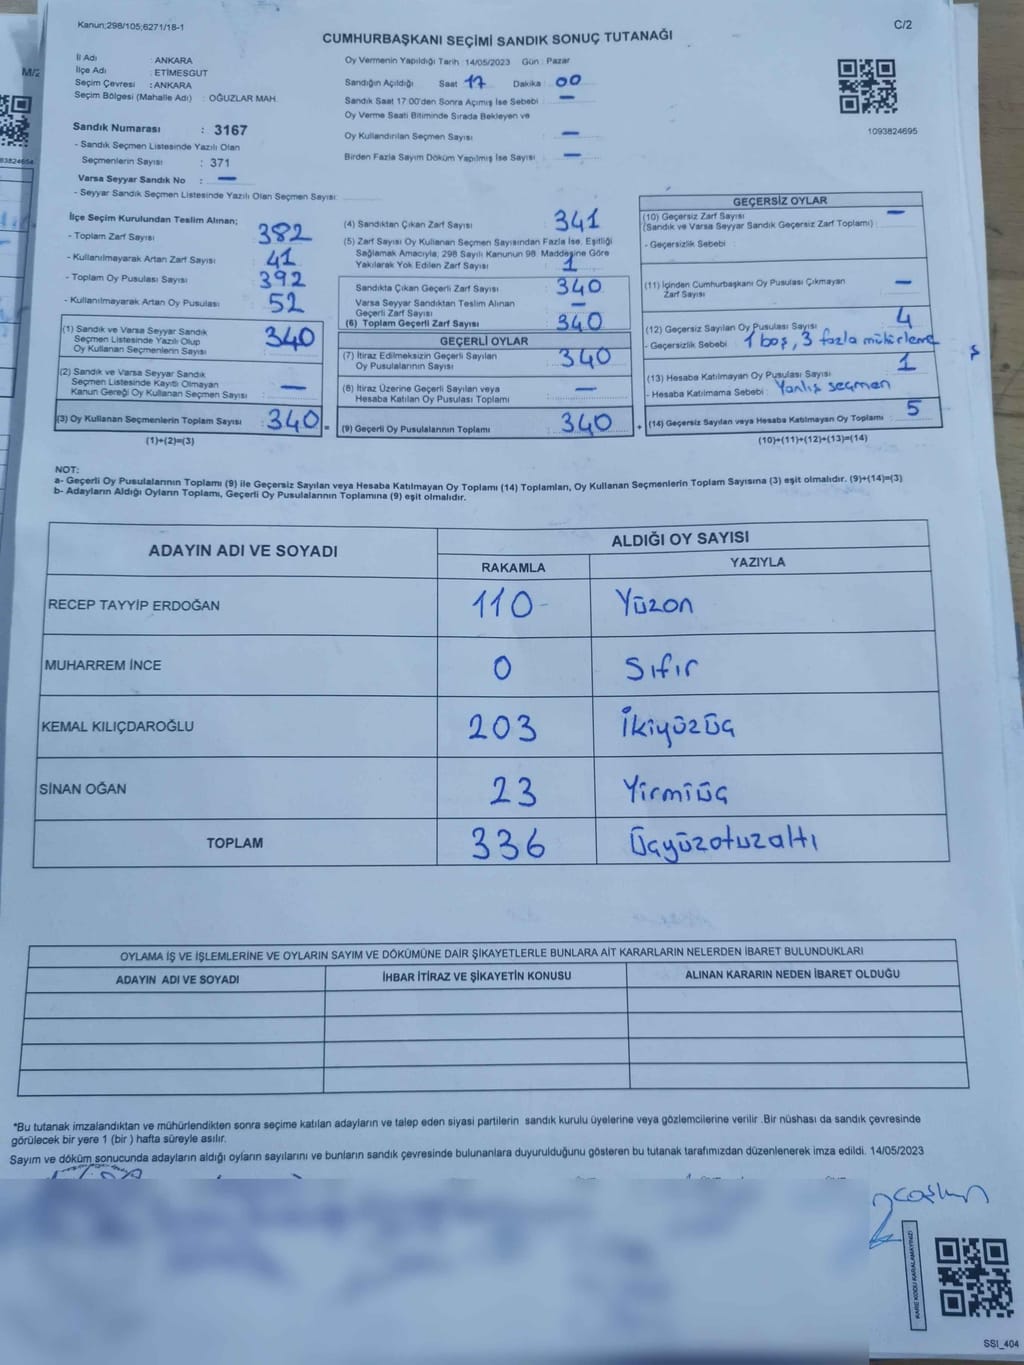 Kanun;298/105;6271/18-1
C/2
CUMHURBAŞKANI SEÇİMİ SANDIK SONUÇ TUTANAĞI
İl Adı : ANKARA
İlçe Adı : ETİMESGUT
Seçim Çevresi : ANKARA
Seçim Bölgesi (Mahalle Adı) : OĞUZLAR MAH.
Sandık Numarası : 3167
- Sandık Seçmen Listesinde Yazılı Olan
Seçmenlerin Sayısı : 371
Varsa Seyyar Sandık No : -
- Seyyar Sandık Seçmen Listesinde Yazılı Olan Seçmen Sayısı:
Oy Vermenin Yapıldığı Tarih :14/05/2023 Gün : Pazar
Sandığın Açıldığı Saat 17 Dakika : 00
Sandık Saat 17.00'den Sonra Açımış İse Sebebi : -
Oy Verme Saati Bitiminde Sırada Bekleyen ve
Oy Kullandırılan Seçmen Sayısı : -
Birden Fazla Sayım Döküm Yapılmış İse Sayısı : -
1093824695
İlçe Seçim Kurulundan Teslim Alınan;
- Toplam Zarf Sayısı : 382
- Kullanılmayarak Artan Zarf Sayısı : 41
- Toplam Oy Pusulası Sayısı : 392
- Kullanılmayarak Artan Oy Pusulası : 52
(1) Sandık ve Varsa Seyyar Sandık
Seçmen Listesinde Yazılı Olup
Oy Kullanan Seçmenlerin Sayısı : 340
(2) Sandık ve Varsa Seyyar Sandık
Seçmen Listesinde Kayıtlı Olmayan
Kanun Gereği Oy Kullanan Seçmen Sayısı : -
(3) Oy Kullanan Seçmenlerin Toplam Sayısı : 340 =
(1)+(2)=(3)
(4) Sandıktan Çıkan Zarf Sayısı : 341
(5) Zarf Sayısı Oy Kullanan Seçmen Sayısından Fazla İse, Eşitliği
Sağlamak Amacıyla; 298 Sayılı Kanunun 98. Maddesine Göre
Yakılarak Yok Edilen Zarf Sayısı : 1
Sandıkta Çıkan Geçerli Zarf Sayısı : 340
Varsa Seyyar Sandıktan Teslim Alınan
Geçerli Zarf Sayısı : -
(6) Toplam Geçerli Zarf Sayısı : 340
GEÇERLİ OYLAR
(7) İtiraz Edilmeksizin Geçerli Sayılan
Oy Pusulalarının Sayısı : 340
(8) İtiraz Üzerine Geçerli Sayılan veya
Hesaba Katılan Oy Pusulası Toplamı : -
(9) Geçerli Oy Pusulalarının Toplamı : 340 +
GEÇERSİZ OYLAR
(10) Geçersiz Zarf Sayısı : -
(Sandık ve Varsa Seyyar Sandık Geçersiz Zarf Toplamı)
- Geçersizlik Sebebi :
(11) İçinden Cumhurbaşkanı Oy Pusulası Çıkmayan
Zarf Sayısı : -
(12) Geçersiz Sayılan Oy Pusulası Sayısı : 4
- Geçersizlik Sebebi : 1 boş, 3 fazla mühürleme
(13) Hesaba Katılmayan Oy Pusulası Sayısı : 1
- Hesaba Katılmama Sebebi : Yanlış seçmen
(14) Geçersiz Sayılan veya Hesaba Katılmayan Oy Toplamı : 5
(10)+(11)+(12)+(13)=(14)
NOT:
a- Geçerli Oy Pusulalarının Toplamı (9) ile Geçersiz Sayılan veya Hesaba Katılmayan Oy Toplamı (14) Toplamları, Oy Kullanan Seçmenlerin Toplam Sayısına (3) eşit olmalıdır. (9)+(14)=(3)
b- Adayların Aldığı Oyların Toplamı, Geçerli Oy Pusulalarının Toplamına (9) eşit olmalıdır.
ADAYIN ADI VE SOYADI
ALDIĞI OY SAYISI
RAKAMLA YAZIYLA
RECEP TAYYİP ERDOĞAN 110 Yüzon
MUHARREM İNCE 0 Sıfır
KEMAL KILIÇDAROĞLU 203 İkiyüzüç
SİNAN OĞAN 23 Yirmiüç
TOPLAM 336 Üçyüzotuzaltı
OYLAMA İŞ VE İŞLEMLERİNE VE OYLARIN SAYIM VE DÖKÜMÜNE DAİR ŞİKAYETLERLE BUNLARA AİT KARARLARIN NELERDEN İBARET BULUNDUKLARI
ADAYIN ADI VE SOYADI İHBAR İTİRAZ VE ŞİKAYETİN KONUSU ALINAN KARARIN NEDEN İBARET OLDUĞU
*Bu tutanak imzalandıktan ve mühürlendikten sonra seçime katılan adayların ve talep eden siyasi partilerin sandık kurulu üyelerine veya gözlemcilerine verilir .Bir nüshası da sandık çevresinde
görülecek bir yere 1 (bir ) hafta süreyle asılır.
Sayım ve döküm sonucunda adayların aldığı oyların sayılarını ve bunların sandık çevresinde bulunanlara duyurulduğunu gösteren bu tutanak tarafımızdan düzenlenerek imza edildi. 14/05/2023
KARE KODU KARALAMAYINIZ!
SSI_404